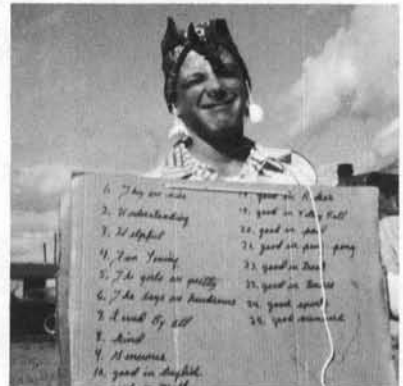 1. They are nice
2. Understanding
3. Helpful
4. Fun Young
5. The girls are pretty
6. The boys are handsome
7. Loved By all
8. kind
9. Generous
10. good in English
18. good in
19. good in Volley Ball
20. good in pool
21. good in ping-pong
22. good in
23. good in
24. good sport
25. good